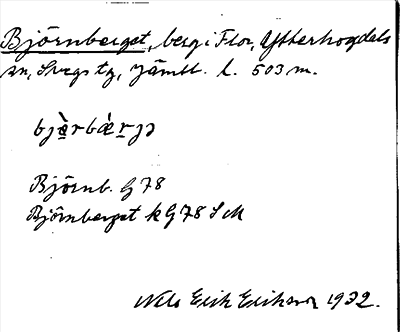 Björnberget, berg i Flor, Ytterhogdals
sn, Svegs tg, Jämtl. l. 503 m.
bjæ̀rbǽrjə
Björnb. G 78
Björnberget k G 78 S M
Nils Erik Erikson 1932.